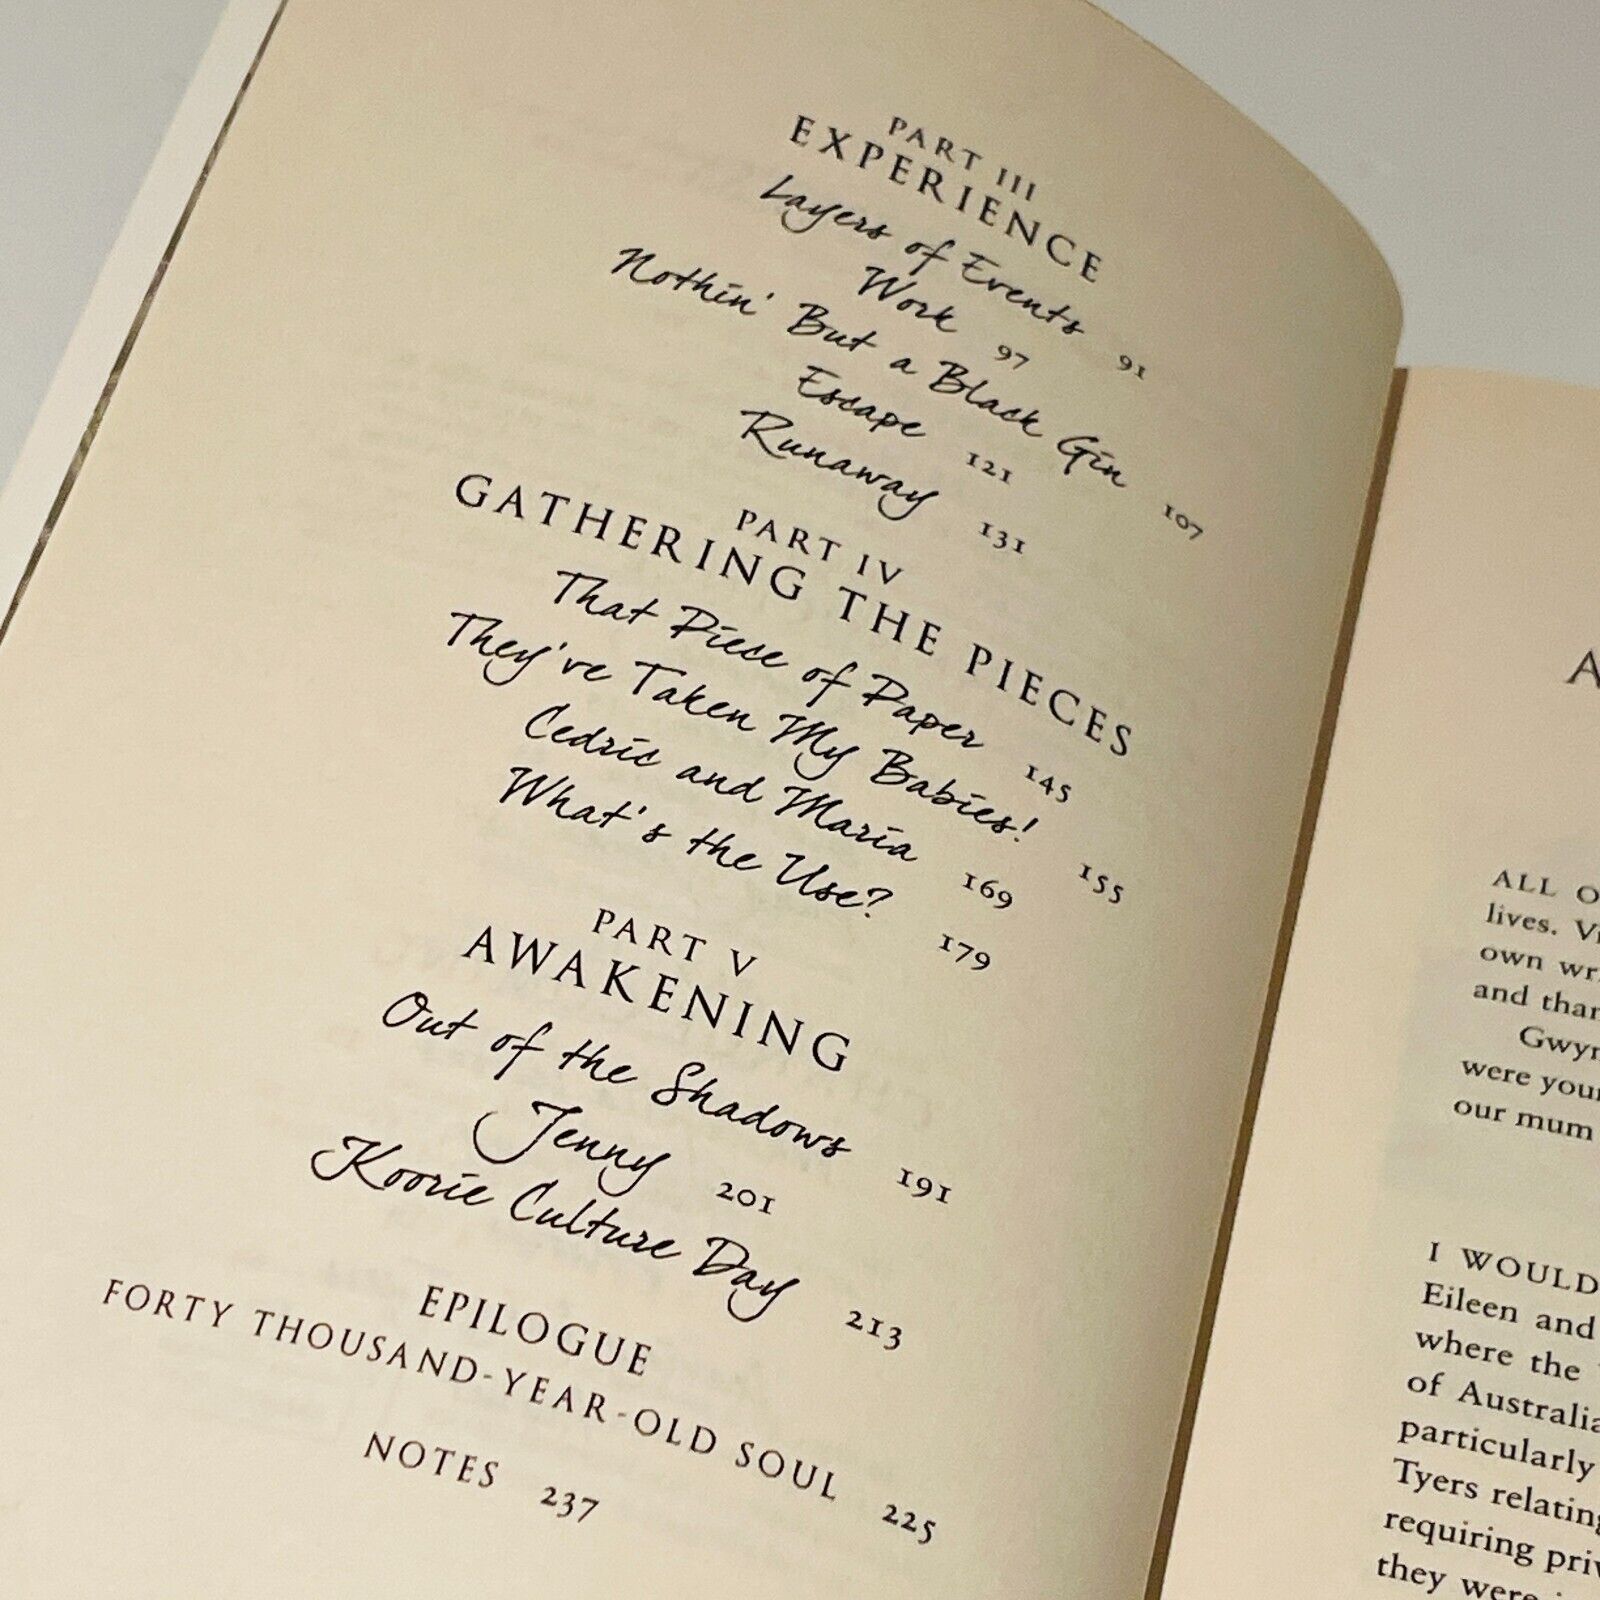 PART III
EXPERIENCE
Layers of Events 91
Work 97
Nothin' But a Black Gin 107
Escape 121
Runaway 131
PART IV
GATHERING THE PIECES
That Piece of Paper 145
They've Taken My Babies! 155
Cedric and Maria 169
What's the Use? 179
PART V
AWAKENING
Out of the Shadows 191
Jenny 201
Koorie Culture Day 213
EPILOGUE
FORTY THOUSAND-YEAR-OLD SOUL 225
NOTES 237
ALL
lives.
own
and
were
our mum
I WOULD
Eileen and
where the
of
particularly
Tyers
requiring
they were